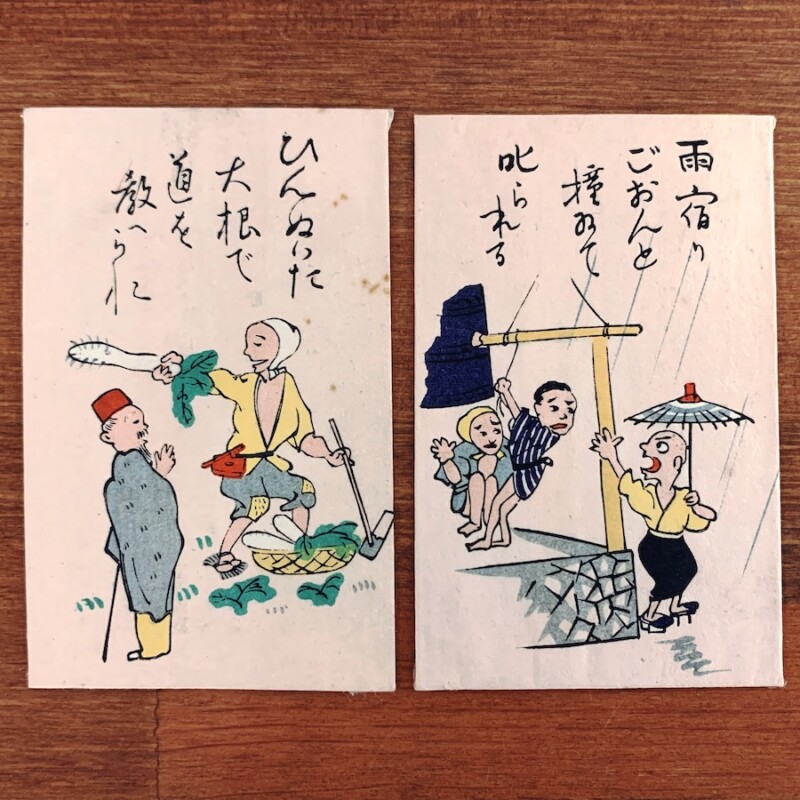 ひんぬいた
大根で
道を
教へられ
雨宿り
ごおんと
撞いて
叱られる